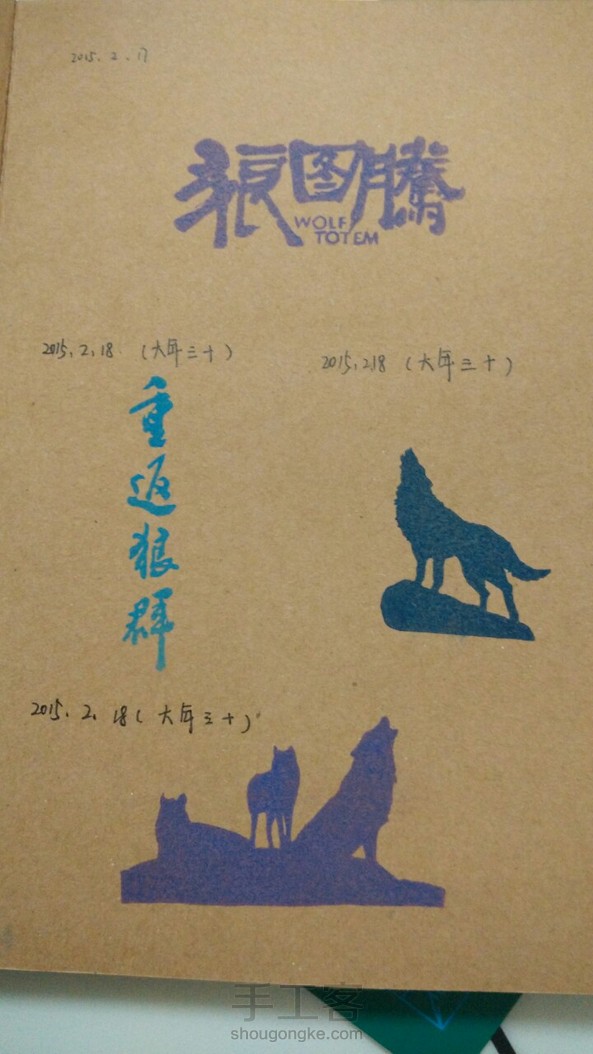 2015.2.17
狼图腾
WOLF
TOTEM
2015.2.18 (大年三十)
2015.2.18 (大年三十)
重返狼群
2015.2.18 (大年三十)
手工客
shougongke.com